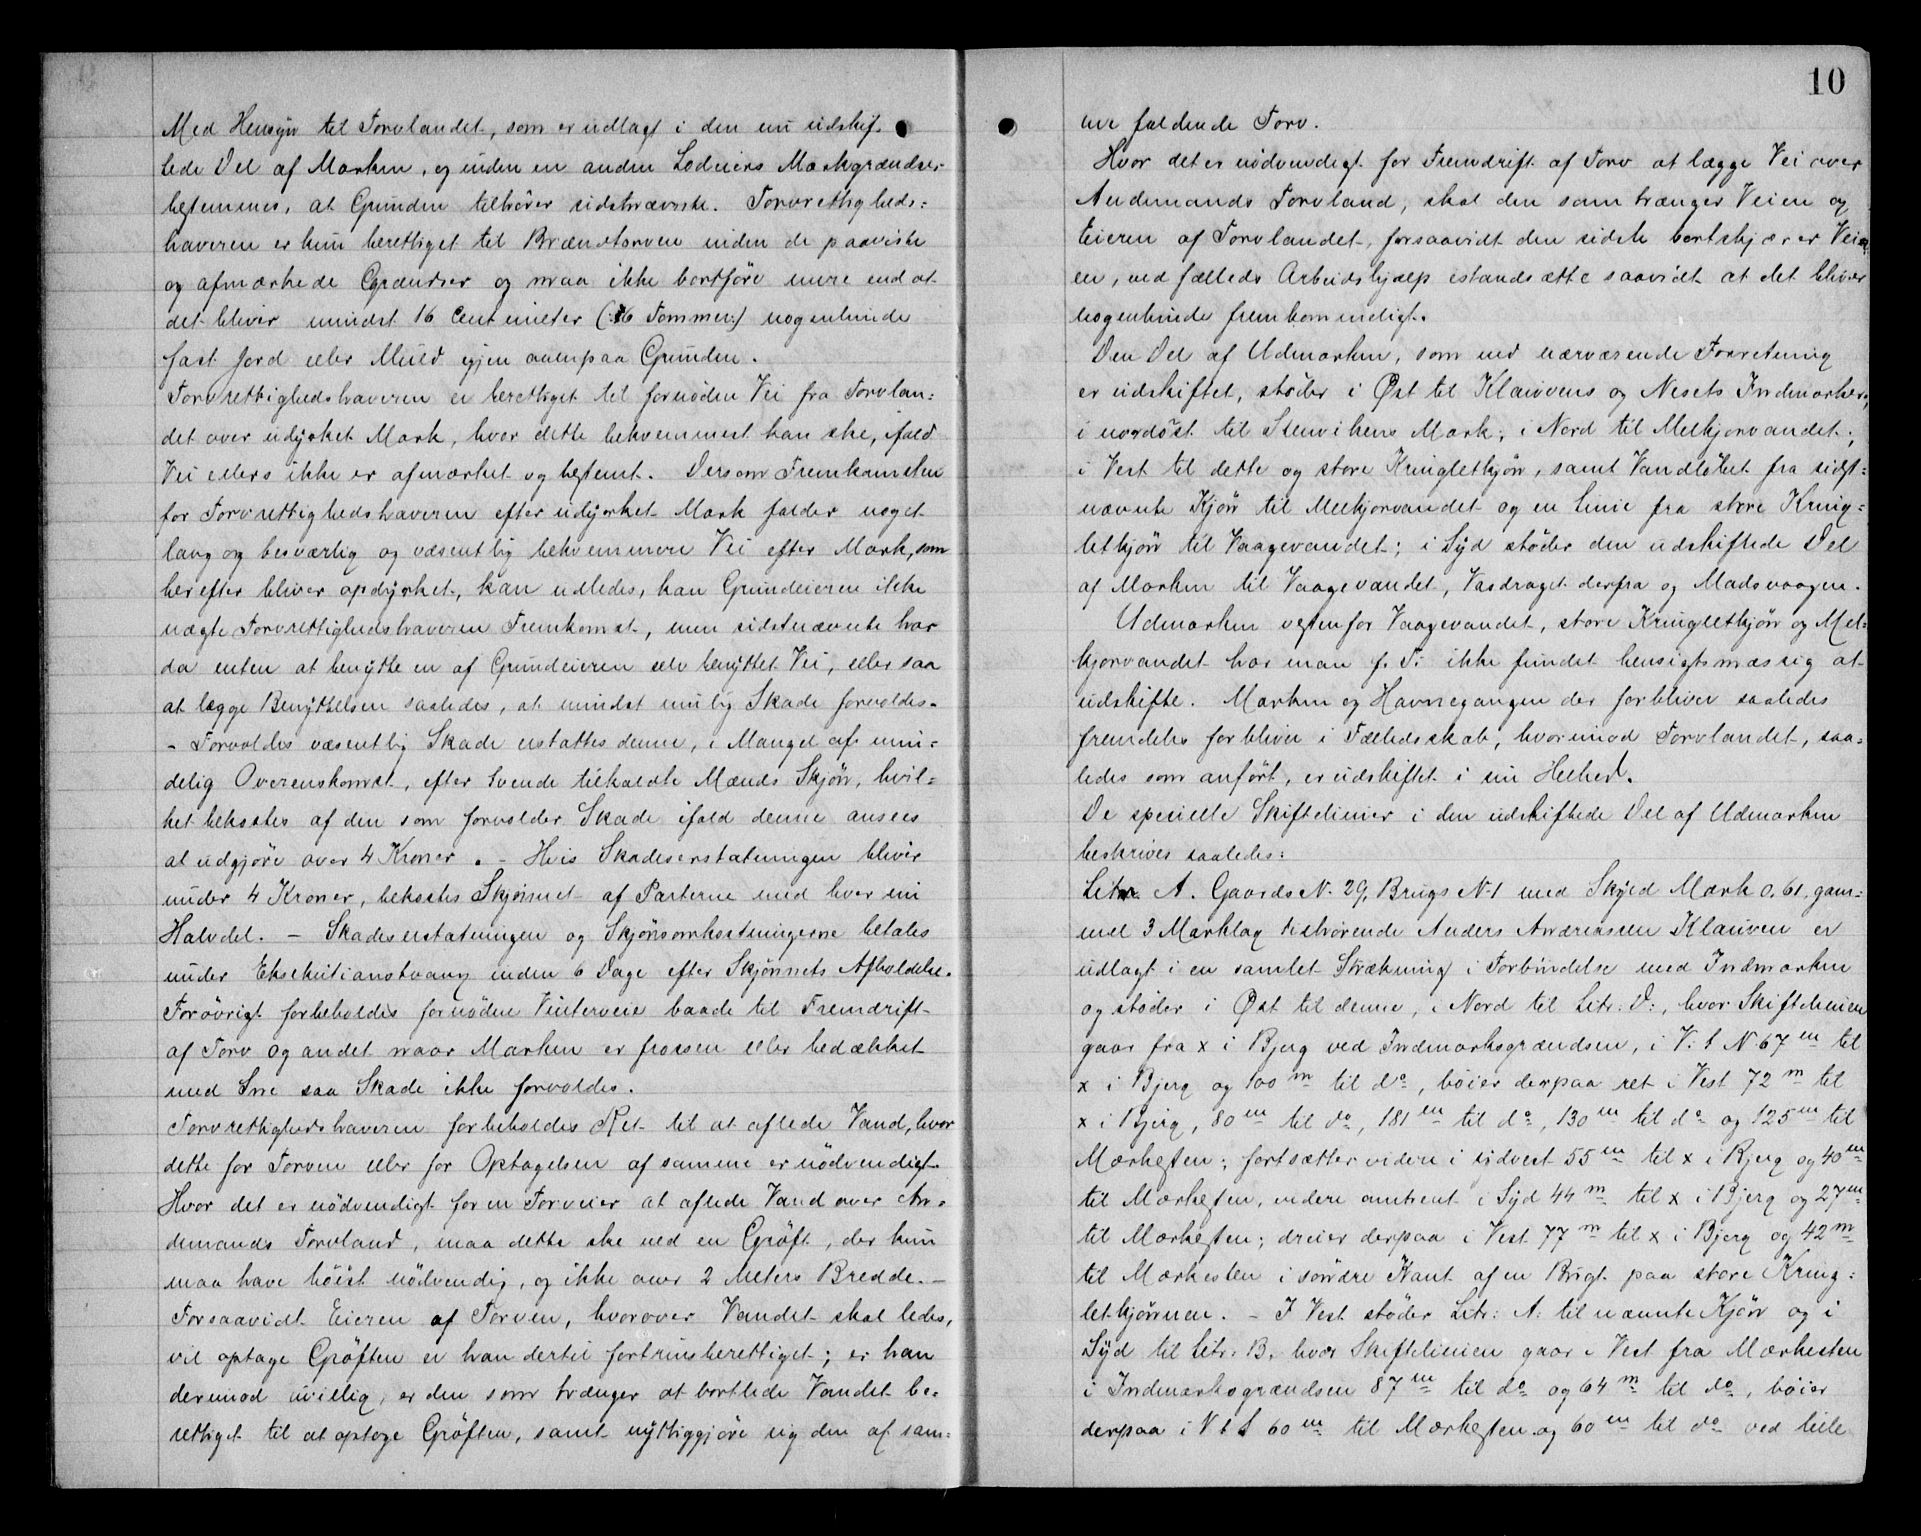 Med Hensyn til Torvlandet, som er udlagt i den nu udskif-
tede Del af Marken, og inden en anden Lodeiers Markgrændser
bestemmes, at Grunden tilhører sidstnævnte. Torvrettigheds=
haveren er kun berettiget til Brændtorven inden de paaviste
og afmærkede Grændser og maa ikke bortføre mere end at
det bliver mindst 16 Centimeter (:6 Tommer:) nogenlunde
fast Jord eller Muld igjen ovenpaa Grunden.
Torvrettighedshaveren er berettiget til fornøden Vei fra Torvlan=
det over udyrket Mark, hvor dette bekvemmest kan ske, ifald
Vei ellers ikke er afmærket og bestemt. Dersom Fremkomsten
for Torvrettighedshaveren efter udyrket Mark falder noget
lang og besværlig og væsentlig bekvemmere Vei efter Mark, som
herefter bliver opdyrket, kan udledes, kan Grundeieren ikke
nægte Torvrettighedshaveren Fremkomst, men sidstnævnte har
da enten at benytte en af Grundeieren selv benyttet Vei, eller saa
at lægge Benyttelsen saaledes, at mindst mulig Skade forvoldes.
– Forvoldes væsentlig Skade erstattes denne, i Mangel af min=
delig Overenskomst, efter tvende tilkaldte Mænds Skjøn, hvil=
ket bekostes af den som forvolder Skade ifald denne ansees
at udgjøre over 4 Kroner. – Hvis Skadeserstatningen bliver
under 4 Kroner, bekostes Skjønnet af Parterne med hver sin
Halvdel. – Skadeserstatningen og Skjønsomkostningerne betales
under Eksekutionstvang inden 6 Dage efter Skjønnets Afholdelse.
Forøvrigt forbeholdes fornødne Vinterveie baade til Fremdrift
af Torv og andet naar Marken er frossen eller bedækket
med Sne saa Skade ikke forvoldes.
Torvrettighedshaveren forbeholdes Ret til at aflede Vand, hvor
dette for Torven eller for Optagelsen af samme er nødvendigt.
Hvor det er nødvendigt for en Torveier at aflede Vand over An=
denmands Torvland, maa dette ske ved en Grøft, der kun
maa have høist nødvendig, og ikke over 2 Meters Bredde. –
Forsaavidt Eieren af Torven, hvorover Vandet skal ledes,
vil optage Grøften er han dertil fortrinsberettiget; er han
derimod uvillig, er den som trænger at bortlede Vandet be=
rettiget til at optage Grøften, samt nyttiggjøre sig den af sam=
10
me faldende Torv.
Hvor det er nødvendigt for Fremdrift af Torv at lægge Vei over
Andenmands Torvland, skal den som trænger Veien og
Eieren af Torvlandet, forsaavidt den sidste bortskjærer Vei=
en, ved fælleds Arbeidshjælp istandsætte saavidt at det bliver
nogenlunde fremkommeligt.
Den Del af Udmarken, som ved nærværende Forretning
er udskiftet, støder i Øst til Klauvens og Nesets Indmarker,
i nordøst til Stenvikens Mark; i Nord til Melkjørvandet;
i Vest til dette og store Kringletkjørn, samt Vandløbet fra sidst=
nævnte Kjørn til Melkjørvandet og en Linie fra store Kring=
letkjørn til Vaagevandet; i Syd støder den udskiftede Del
af Marken til Vaagevandet, Vasdraget derfra og Madsvaagen.
Udmarken vestenfor Vaagevandet, store Kringletkjørn og Mel=
kjørvandet har man f. T. ikke fundet hensigtsmæssig at
udskifte. Marken og Havnegangen der forbliver saaledes
fremdeles forbliver i Fælledsskab, hvorimod Torvlandet, saa=
ledes som anført, er udskiftet i sin Helhed.
De specielle Skiftelinier i den udskiftede Del af Udmarken
beskrives saaledes:
Litr. A. Gaards N. 29, Brugs N. 1 med Skyld Mark 0,61, gam=
mel 3 Marklag tilhørende Anders Andreassen Klauven er
udlagt i en samlet Strækning i Forbindelse med Indmarken
og støder i Øst til denne, i Nord til Litr: D:, hvor Skiftelinien
gaar fra x i Bjerg ved Indmarksgrændsen, i V. t N 67 m til
x i Bjerg og 100 m til do, bøier derpaa ret i Vest 72 m til
x i Bjerg, 80 m til do, 181 m til do, 130 m til do og 125 m til
Mærkesten; fortsætter videre i sydvest 55 m til x i Bjerg og 40 m
til Mærkesten, videre omtrent i Syd 44 m til x i Bjerg og 27 m
til Mærkesten; dreier derpaa i Vest 77 m til x i Bjerg og 42 m
til Mærkesten i søndre Kant af en Bugt paa store Kring=
letkjørnen. – I Vest støder Litr: A: til nævnte Kjørn og i
Syd til Litr: B, hvor Skiftelinien gaar i Vest fra Mærkesten
i Indmarksgrændsen 87 m til do og 64 m til do, bøier
derpaa i V t S 60 m til Mærkesten og 60 m til do ved lille